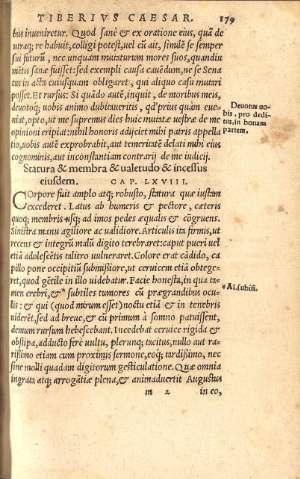 TIBERIVS CAESAR. 179
bus inueniretur. Quod sanè & ex oratione eius, quã de
utraq; re habuit, colligi potest, uel cũ ait, similẽ se semper
sui futurũ, nec unquam mutaturum mores suos, quandiu
mẽtis sanæ fuisset: sed exempli causa cauẽdum, ne se Sena
tus in acta cuiusquam obligaret, qui aliquo casu mutari
posset. Et rursus: Si quãdo autẽ, inquit, de moribus meis,
deuotoq; uobis animo dubitaueritis, qd' prius quàm eue-
niat, opto, ut me supremus dies huic mutatæ uestræ de me
opinioni eripiat: nihil honoris adijciet mihi patris appella
tio, uobis autẽ exprobrabit, aut temeritatẽ delati mihi eius
cognominis, aut inconstantiam contrarij de me iudicij.
Deuotus uo-
bis, pro dedi-
tus, in bonam
partem.
Statura & membra & ualetudo & incessus
eiusdem. CAP. LXVIII.
COrpore fuit amplo atq; robusto, statura quæ iustam
excederet. Latus ab humeris & pectore, cæteris
quoq; membris usq; ad imos pedes æqualis & cõgruens.
Sinistra manu agiliore ac ualidiore. Articulis ita firmis, ut
recens & integrũ malũ digito terebraret: caput pueri uel
etiã adolescẽtis talitro uulneraret. Colore erat cãdido, ca
pillo pone occipitiũ submissiore, ut ceruicem etiã obtege-
ret, quod gẽtile in illo uidebatur. Facie honesta, in qua ta-
men crebri, & * subtiles tumores cũ prægrandibus ocu-
lis: & qui (quod mirum esset) noctu etiã & in tenebris
uiderẽt, sed ad breue, & cũ primum à somno patuissent,
demum rursum hebescebant. Incedebat ceruice rigida &
obstipa, adducto ferè uultu, plerunq; tacitus, nullo aut ra-
rissimo etiam cum proximis sermone, eoq; tardissimo, nec
sine molli quadam digitorum gesticulatione. Quæ omnia
ingrata atq; arrogãtiæ plena, & animaduertit Augustus
* Al. subiti.
m 2 in eo,